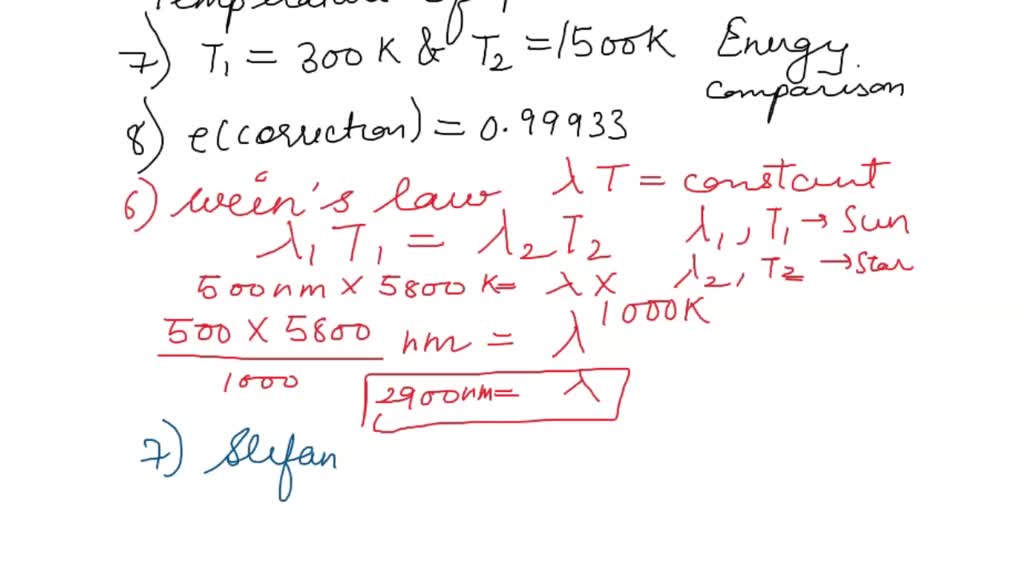 Temperature of
7) T₁ = 300 K & T₂ = 1500K Energy comparison
8) e(correction) = 0.99933
6) wein's law λ T = constant
λ₁ T₁ = λ₂ T₂ λ₁, T₁ → Sun
500nm × 5800 K = λ × 1000K λ₂, T₂ → Star
500 × 5800 / 1000 nm = λ
2900nm = λ
7) Stefan